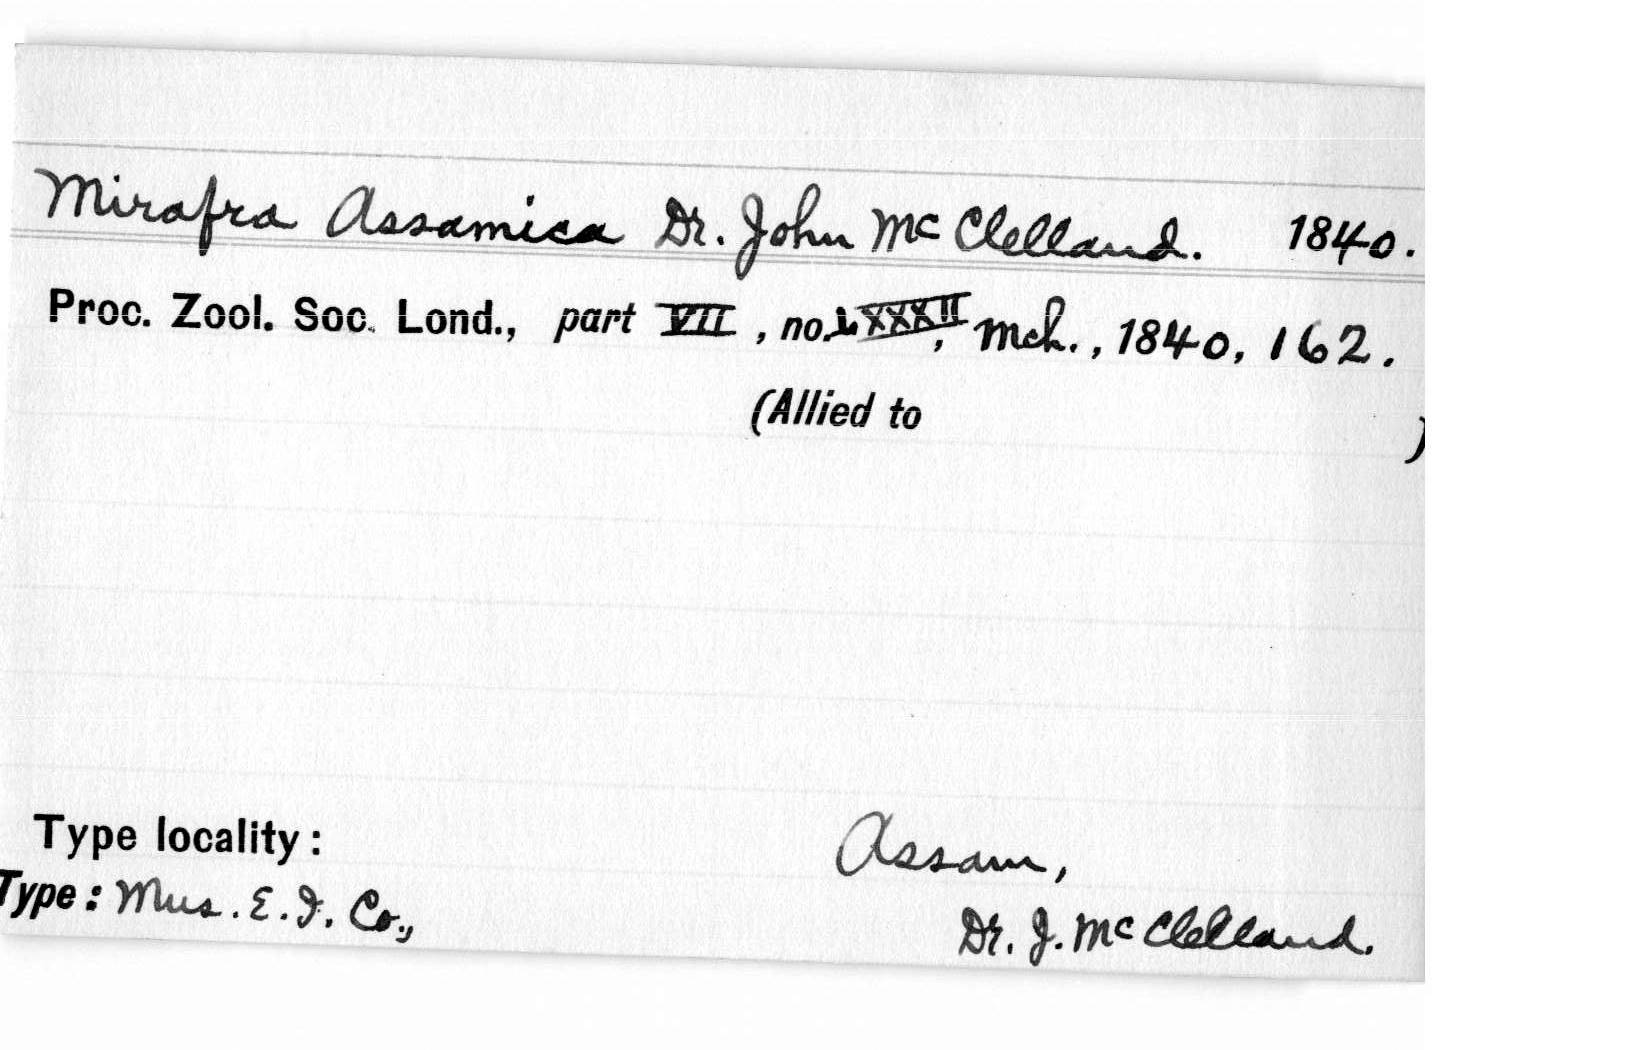 Mirafra Assamica Dr. John McClelland. 1840.
Proc. Zool. Soc. Lond., part VII, no. LXXXII, Mch., 1840, 162.
(Allied to )
Type locality: Assam,
Type: Mus. E. I. Co., Dr. J. McClelland.